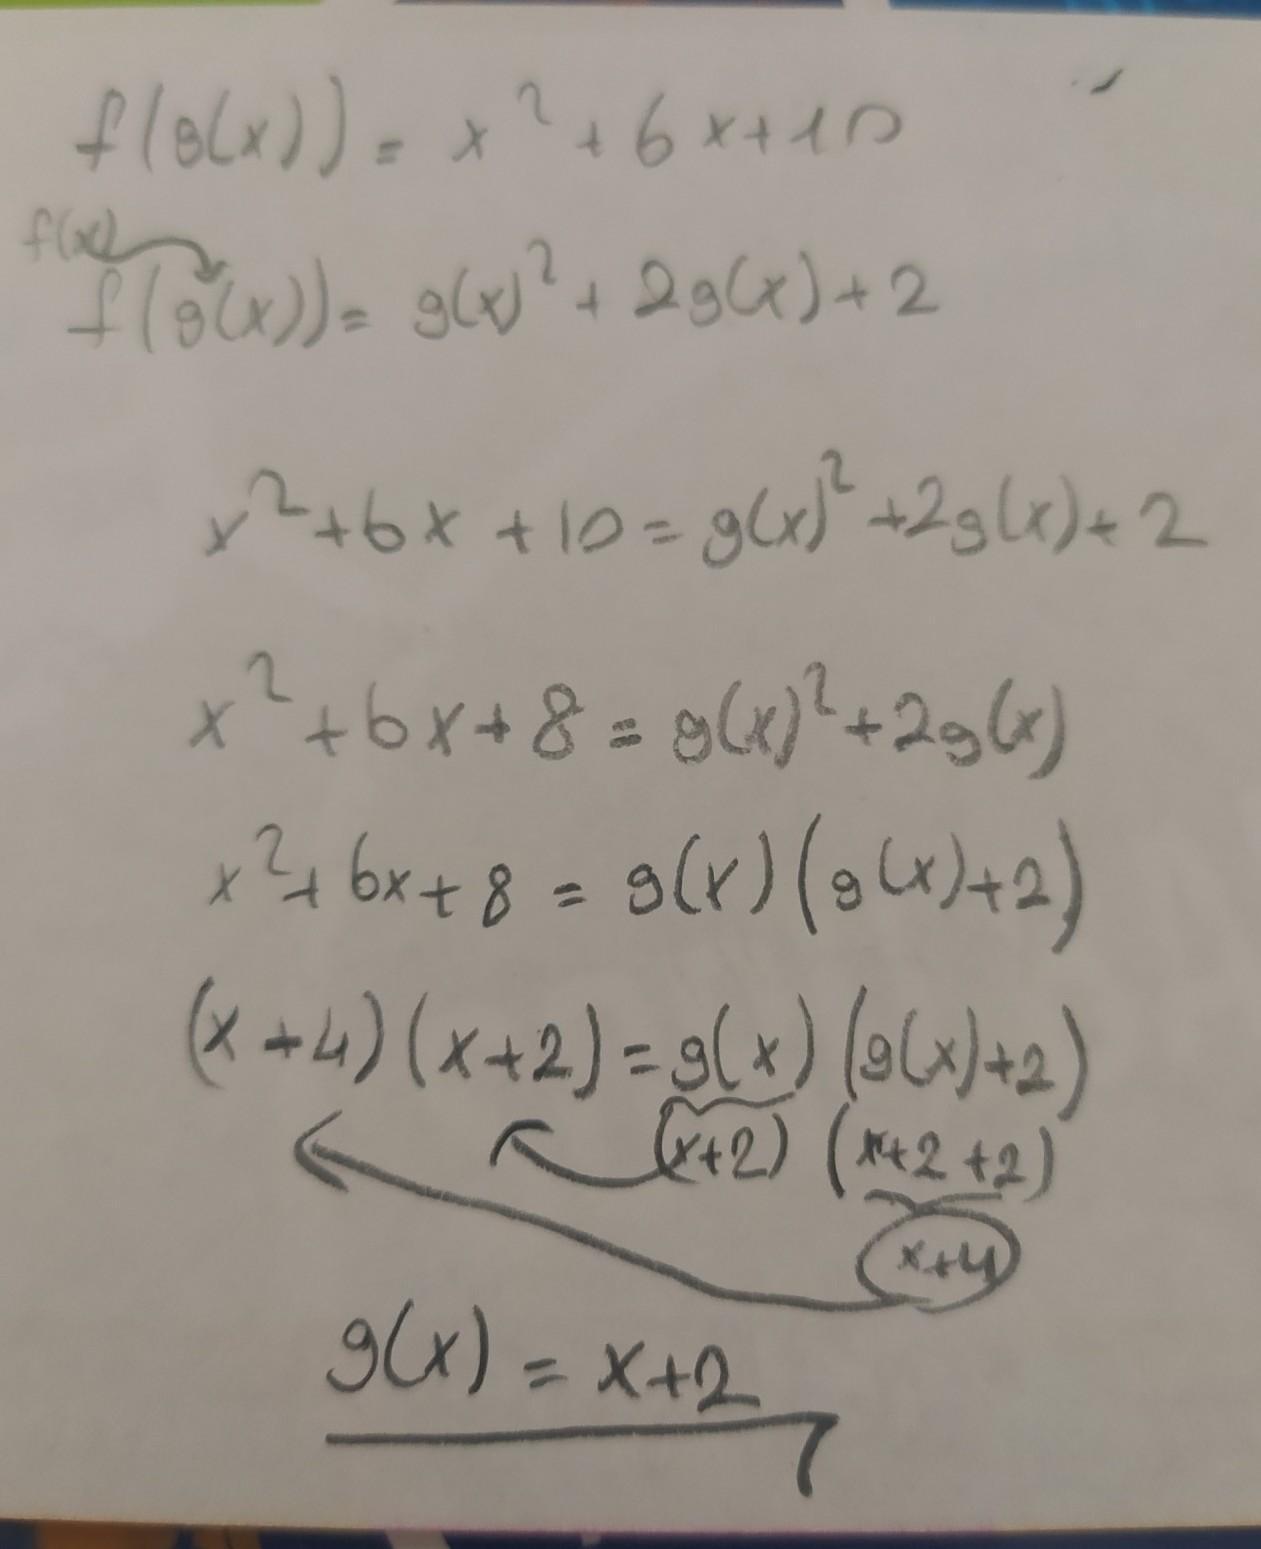 f(g(x)) = x² + 6x + 10
f(x)
f(g(x)) = g(x)² + 2g(x) + 2
x² + 6x + 10 = g(x)² + 2g(x) + 2
x² + 6x + 8 = g(x)² + 2g(x)
x² + 6x + 8 = g(x) (g(x) + 2)
(x + 4) (x + 2) = g(x) (g(x) + 2)
(x+2) (x+2 +2)
x+4
g(x) = x+2